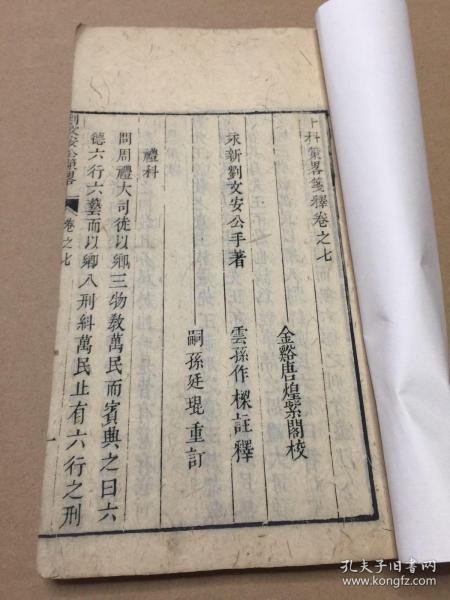 十科策畧箋釋卷之七
金谿唐煌紫閣校
永新劉文安公手著
雲孫作樑註釋
嗣孫廷琨重訂
禮科
問周禮大司徒以鄉三物教萬民而賓興之曰六
德六行六藝而以鄉八刑糾萬民止有六行之刑
劉文安公策畧
卷之七
孔夫子旧书网
www.kongfz.com